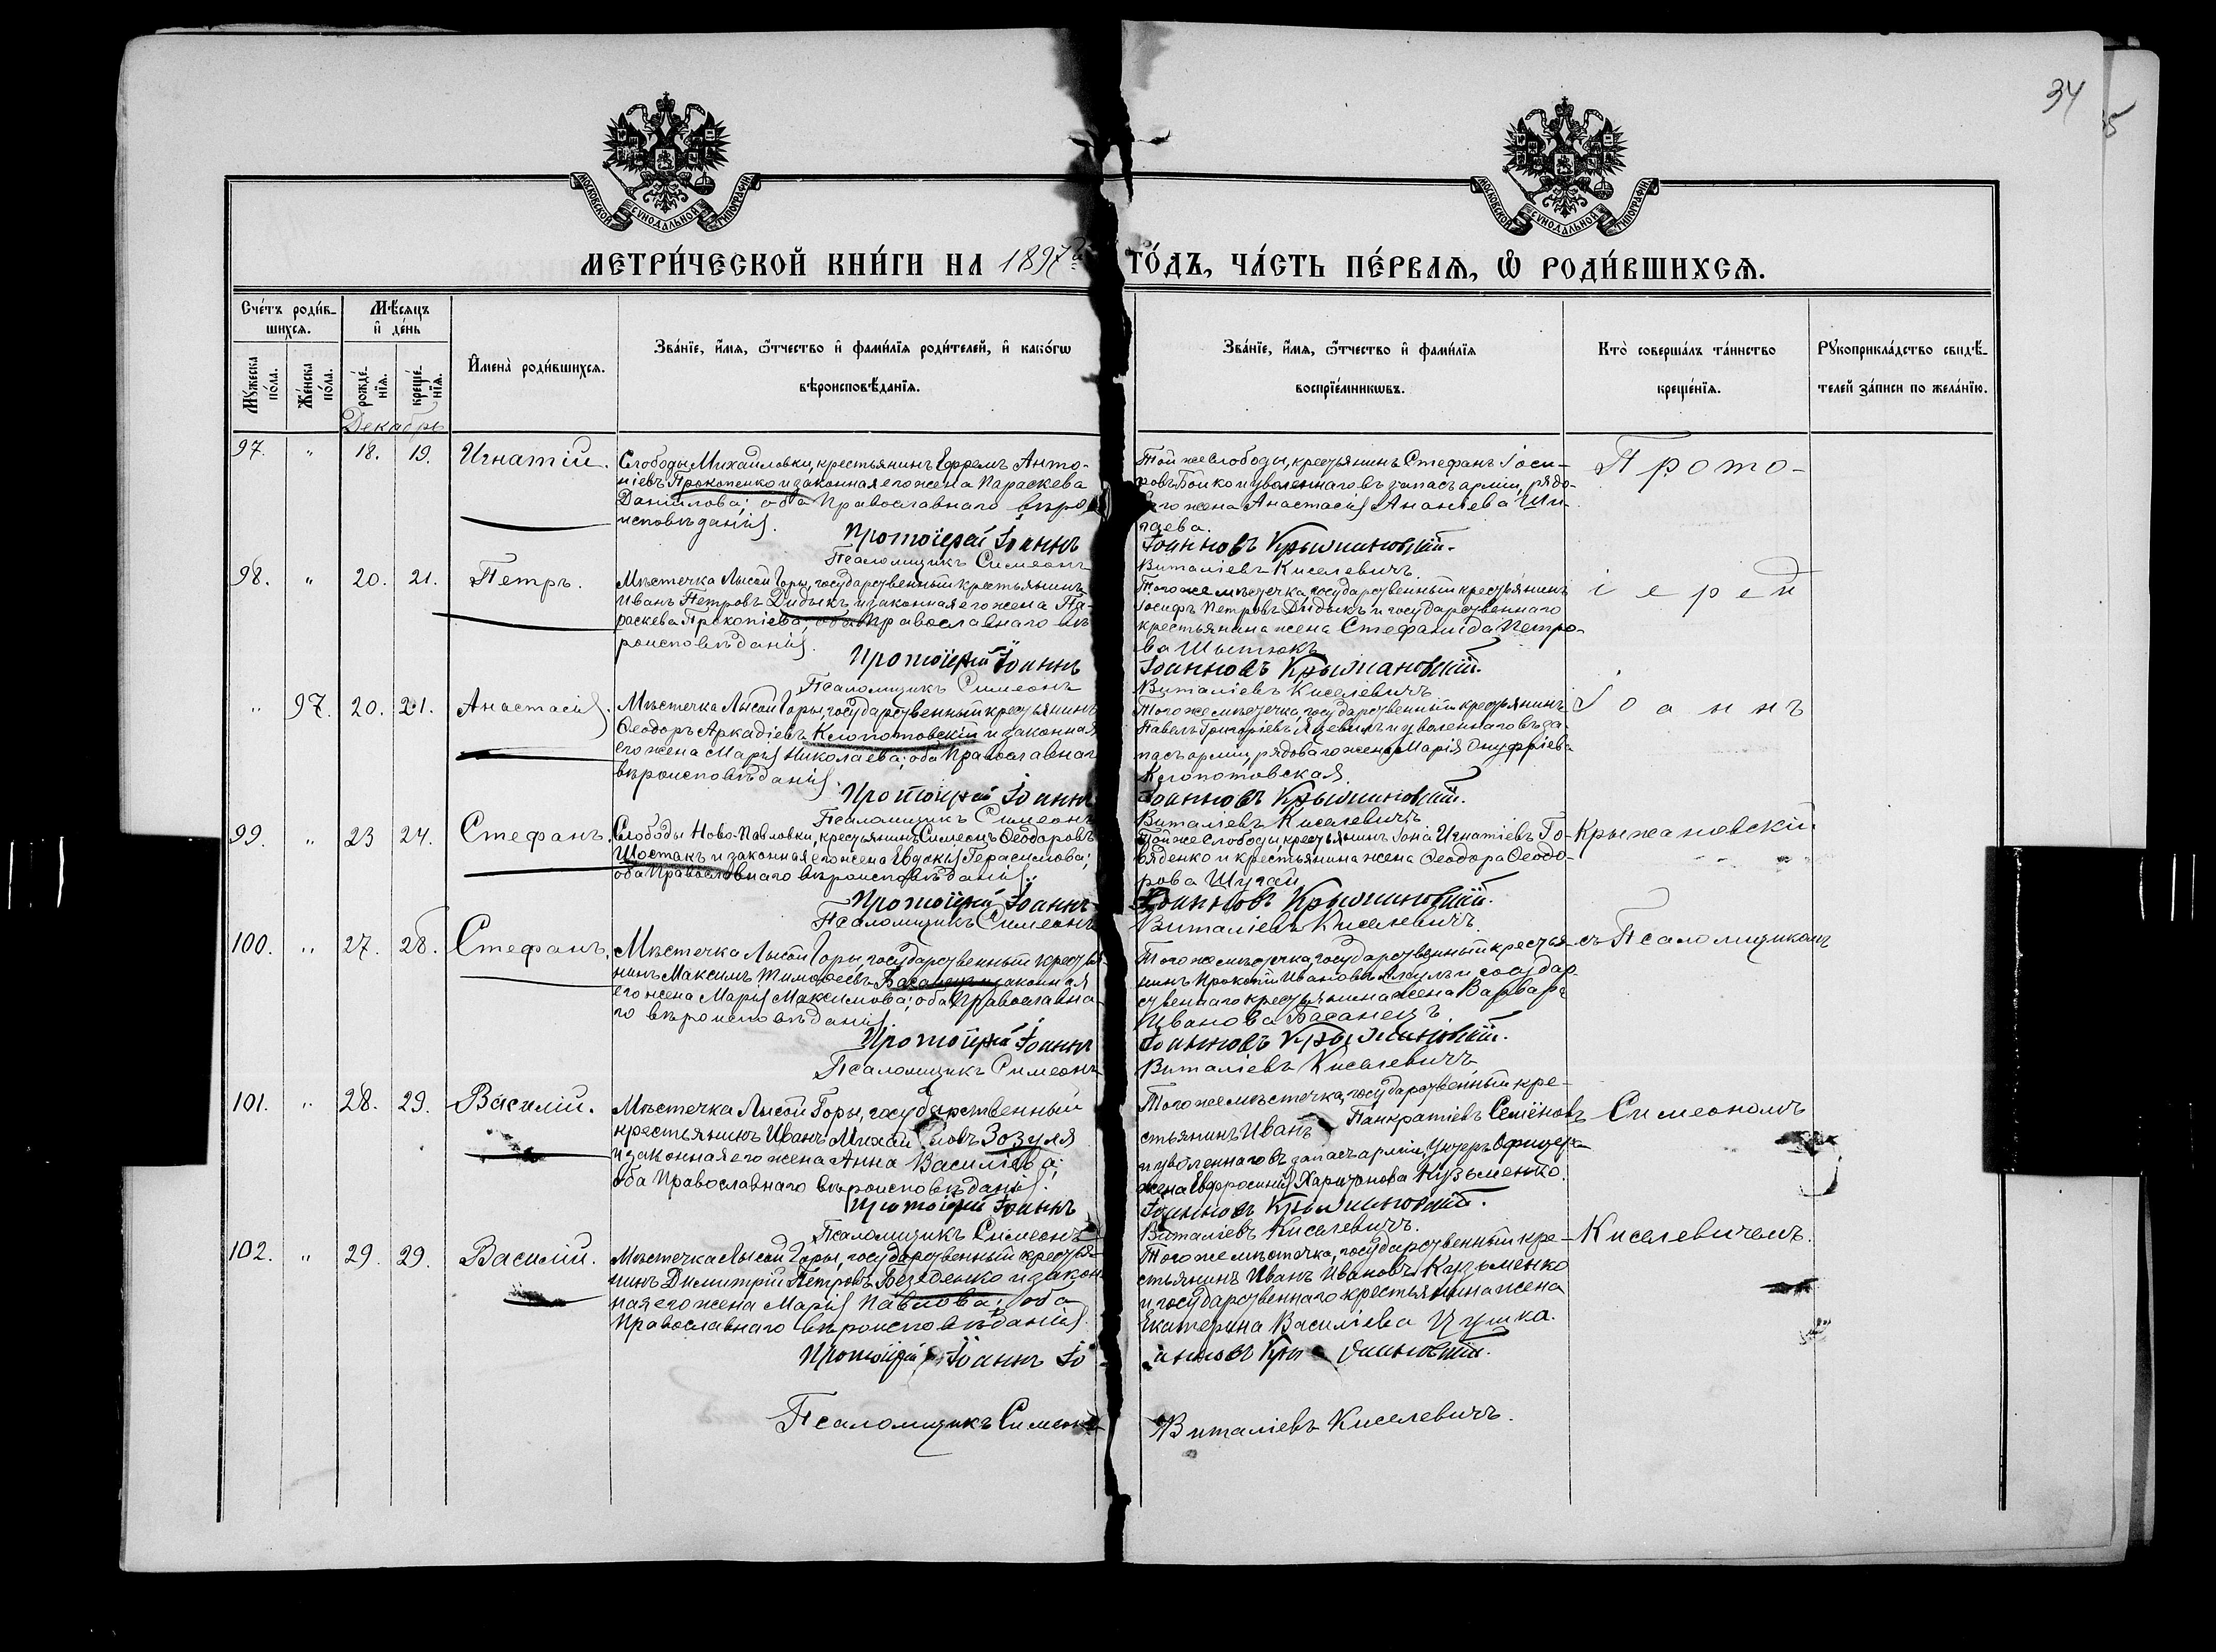 34
МОСКОВСКОЙ СѴНОДАЛЬНОЙ ТИПОГРАФІИ
МОСКОВСКОЙ СѴНОДАЛЬНОЙ ТИПОГРАФІИ
МЕТРИ́ЧЕСКОЙ КНИ́ГИ НА 1897й ГО́ДЪ, ЧА́СТЬ ПЕ́РВАѦ, Ѡ РОДИ́ВШИХСѦ.
Сче́тъ роди́в-
шихсѧ.
Мѣ́сѧцъ
и҆ де́нь
Мꙋ́жеска по́ла.
Же́нска по́ла.
рожде́-
нїѧ.
креще́-
нїѧ.
И҆мена̀ роди́вшихсѧ.
Зва́нїе, и҆́мѧ, ѻ҆́тчество и҆ фами́лїѧ роди́телей, и҆ како́гѡ
вѣроисповѣ́данїѧ.
Зва́нїе, и҆́мѧ, ѻ҆́тчество и҆ фами́лїѧ
воспрїе́мникѡвъ.
Кто̀ соверша́лъ та́инство
креще́нїѧ.
Рꙋкоприкла́дство свидѣ́-
телей за́писи по жела́нїю.
Декабрь
97. " 18. 19. Игнатій.
Слободы Михайловки, крестьянинъ Ефремъ Анто-
ніевъ Прокопенко и законная его жена Параскева
Даніилова; оба Православнаго вѣро-
исповѣданія.
Протоіерей Іоаннъ
Псаломщикъ Симеонъ
Той же слободы, крестьянинъ Стефанъ Іоси-
фовъ Бойко и уволеннаго въ запасъ арміи, рядо-
его жена Анастасія Ананіева
гаева.
Іоанновъ Крыжановскій.
Виталіевъ Киселевичъ.
Прото-
98. " 20. 21. Петръ.
Мѣстечка Лысой Горы, государственный крестьянинъ
Иванъ Петровъ Дидыкъ и законная его жена Па-
раскева Прокопіева; оба Православнаго вѣ-
роисповѣданія.
Протоіерей Іоаннъ
Псаломщикъ Симеонъ
Того же мѣстечка, государственный крестьянинъ
Іосифъ Петровъ Дидыкъ и государственнаго
крестьянина жена Стефанида Петро-
ва
Іоанновъ Крыжановскій.
Виталіевъ Киселевичъ
іерей
" 97. 20. 21. Анастасія.
Мѣстечка Лысой Горы, государственный крестьянинъ
Ѳеодоръ Аркадіевъ Клопотовскій и законная
его жена Марія Николаева; оба Православнаго
вѣроисповѣданія.
Протоіерей Іоаннъ
Псаломщикъ Симеонъ
Того же мѣстечка, государственный крестьянинъ
Павелъ Григоріевъ и уволеннаго въ за-
пасъ арміи, рядоваго жена Марія Онуфріева
Клопотовская.
Іоанновъ Крыжановскій.
Виталіевъ Киселевичъ
Іоаннъ
99. " 23 24. Стефанъ.
Слободы Ново-Павловки, крестьянинъ Симеонъ Ѳеодоровъ
Шостакъ и законная его жена Евдокія Герасимова;
оба Православнаго вѣроисповѣданія.
Протоіерей Іоаннъ
Псаломщикъ Симеонъ
Той же слободы, крестьянинъ Іона Игнатіевъ Го-
вяденко и крестьянина жена Ѳеодора Ѳеодо-
рова Шугай
Іоанновъ Крыжановскій.
Виталіевъ Киселевичъ.
Крыжановскій
100. " 27. 28. Стефанъ.
Мѣстечка Лысой Горы, государственный крестья-
нинъ Максимъ Тимоѳеевъ Басанецъ и законная
его жена Марія Максимова; оба Православна-
го вѣроисповѣданія.
Протоіерей Іоаннъ
Псаломщикъ Симеонъ
Того же мѣстечка, государственный крестья-
нинъ Прокопій Ивановъ и государ-
ственнаго крестьянина жена Варвара
Иванова Басанецъ.
Іоанновъ Крыжановскій.
Виталіевъ Киселевичъ
съ Псаломщикомъ
101. " 28. 29. Василій.
Мѣстечка Лысой Горы, государственный
крестьянинъ Иванъ Михайловъ Зозуля
и законная его жена Анна Василіева;
оба Православнаго вѣроисповѣданія.
Протоіерей Іоаннъ
Псаломщикъ Симеонъ
Того же мѣстечка, государственный кре-
стьянинъ Иванъ Панкратіевъ Семёновъ
и уволеннаго въ запасъ арміи, Унтеръ Офицера
жена Евфросинія Харитонова Кузьменко.
Іоанновъ Крыжановскій.
Виталіевъ Киселевичъ.
Симеономъ
102. " 29. 29. Василій.
Мѣстечка Лысой Горы, государственный крестья-
нинъ Димитрій Петровъ и закон-
ная его жена Марія Павлова; оба
Православнаго вѣроисповѣданія.
Протоіерей Іоаннъ Іо-
Псаломщикъ Симеонъ
Того же мѣстечка, государственный кре-
стьянинъ Иванъ Ивановъ Кузьменко
и государственнаго крестьянина жена
Екатерина Василіева Цушка.
анновъ Крыжановскій.
Виталіевъ Киселевичъ.
Киселевичемъ.